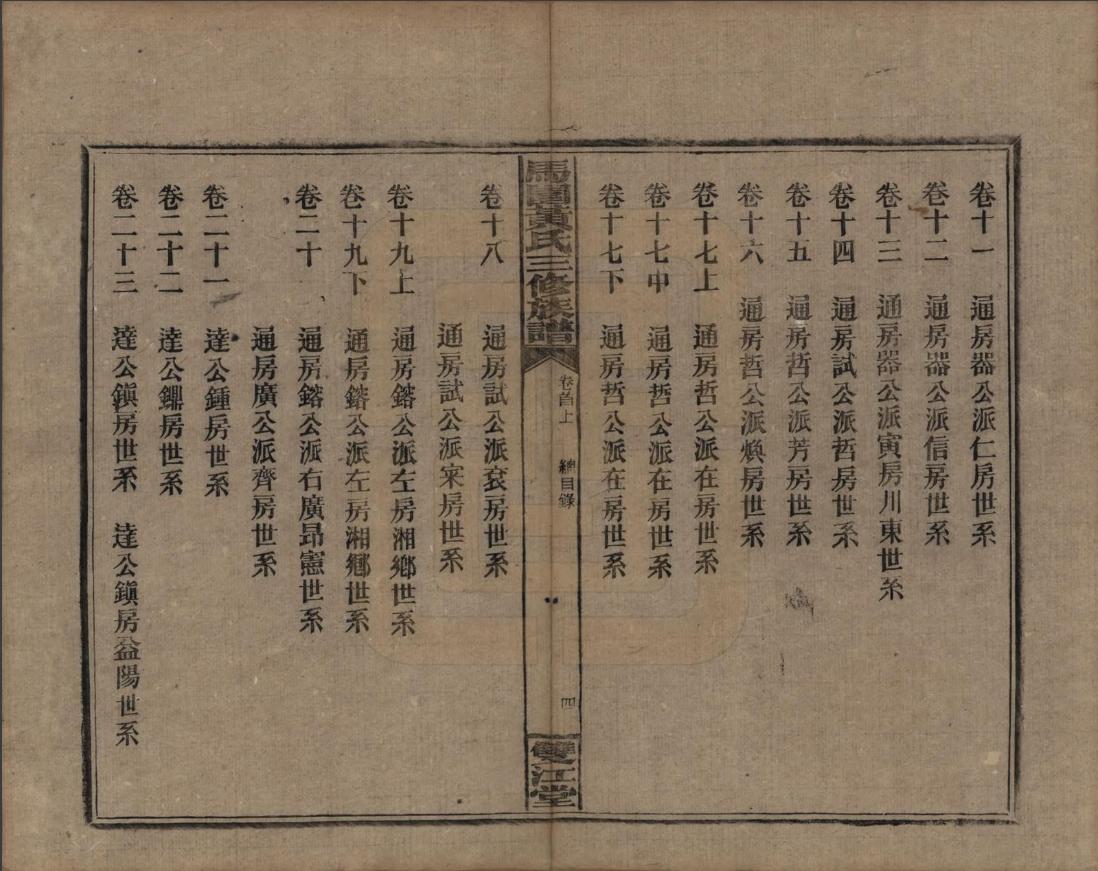 卷十一　通房器公派仁房世系
卷十二　通房器公派信房世系
卷十三　通房器公派寅房川東世系
卷十四　通房試公派哲房世系
卷十五　通房哲公派芳房世系
卷十六　通房哲公派煥房世系
卷十七上　通房哲公派在房世系
卷十七中　通房哲公派在房世系
卷十七下　通房哲公派在房世系
馬園黃氏三修族譜
卷首上　總目錄
四
雙江堂
卷十八　通房試公派袞房世系
通房試公派宷房世系
卷十九上　通房鎔公派左房湘鄉世系
卷十九下　通房鎔公派左房湘鄉世系
卷二十　通房鎔公派右廣昂憲世系
通房廣公派齊房世系
卷二十一　達公鍾房世系
卷二十二　達公鐤房世系
卷二十三　達公鎭房世系　達公鎭房益陽世系